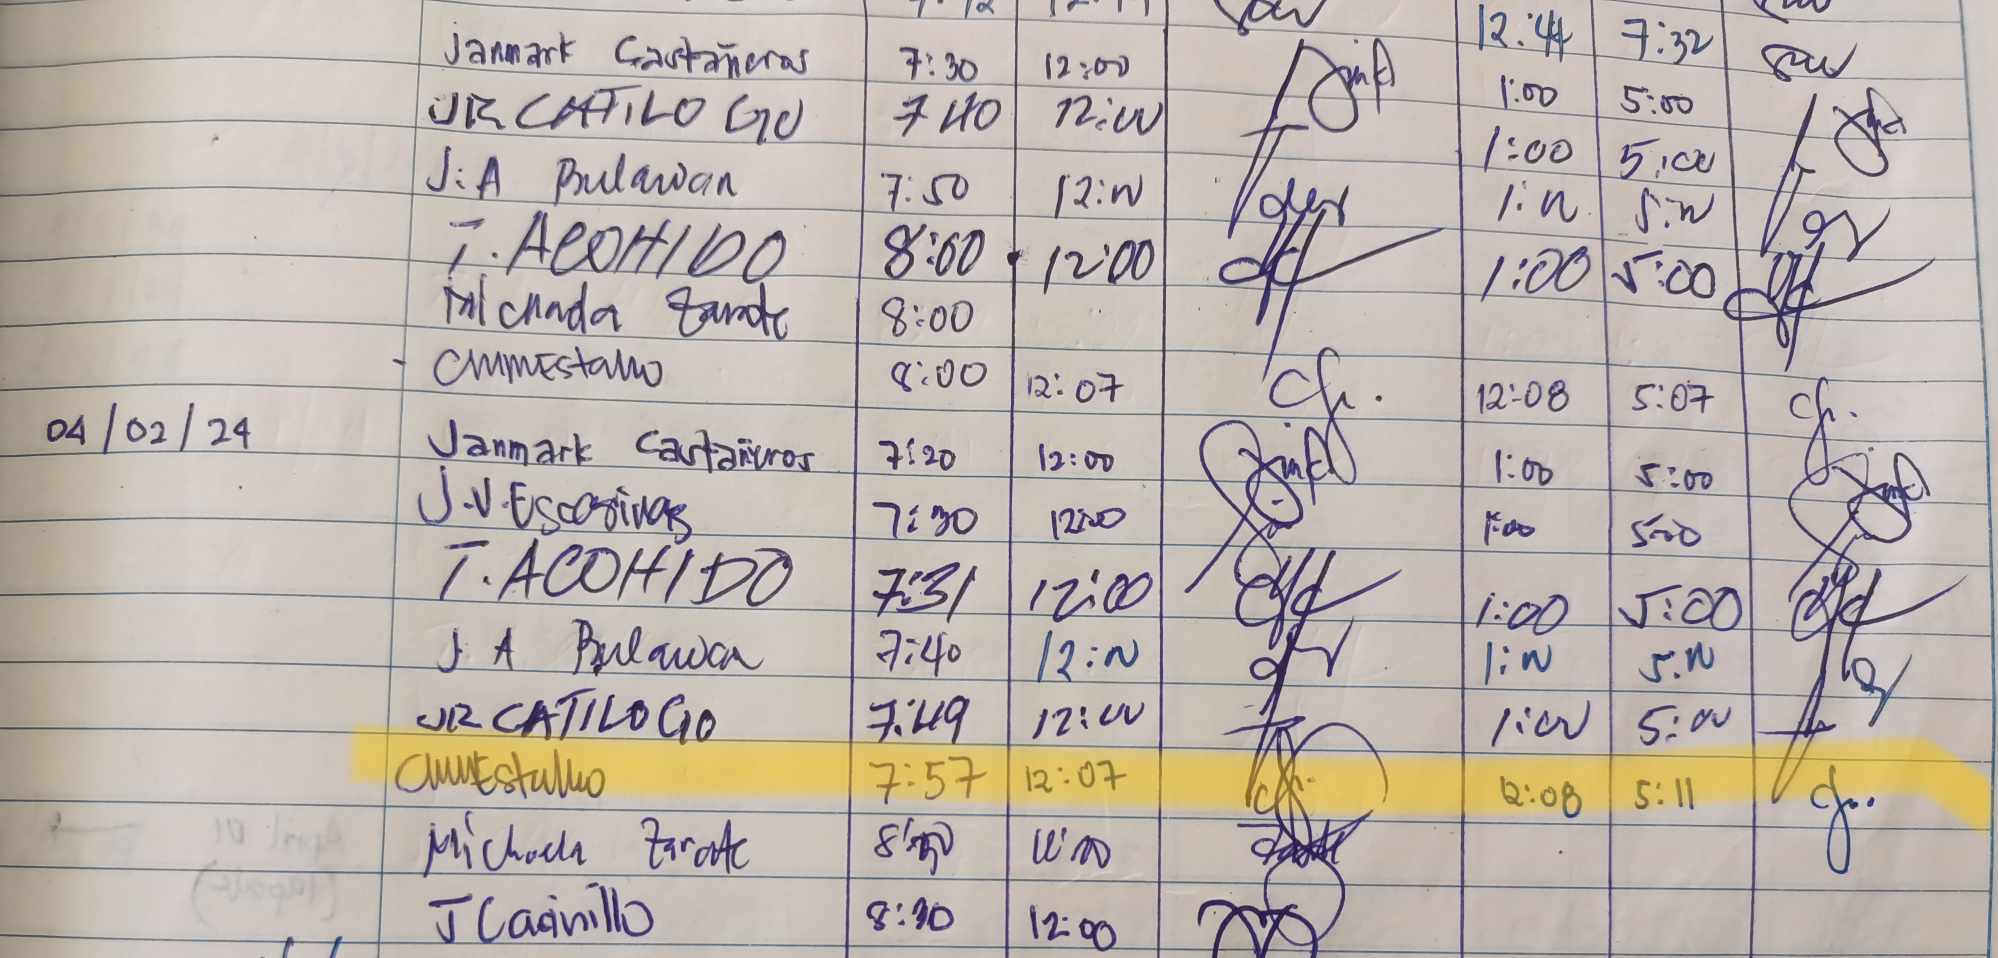 12:44 7:32
Janmark Castañeros 7:30 12:00 1:00 5:00
JR CATILO GO 7 40 12:00 1:00 5:00
J.A Bulawan 7:50 12:N 1:N 5:N
T. ACOHIDO 8:00 12:00 1:00 5:00
Michaela Zarate 8:00
CMMEstallo 8:00 12:07 12:08 5:07
04/02/24 Janmark Castañeros 7:20 12:00 1:00 5:00
J.V. Escasinas 7:30 12:00 1:00 5:00
T. ACOHIDO 7:31 12:00 1:00 5:00
J. A Bulawan 7:40 12:N 1:N 5:N
JR CATILO GO 7:49 12:00 1:00 5:00
CMMEstallo 7:57 12:07 12:08 5:11
Michaela Zarate
J Carinillo 8:30 12:00